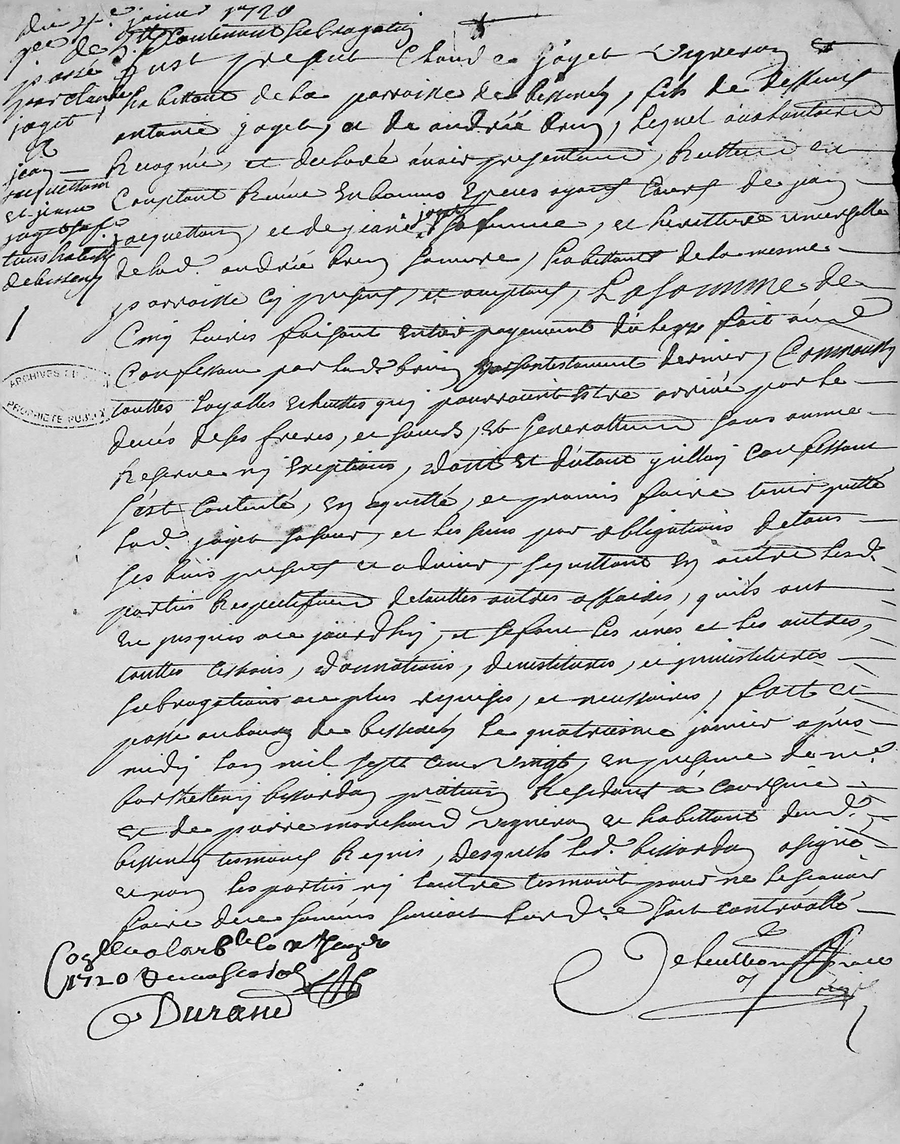 Du 4e. janvier 1720
qce de 5 ₶ Contenant subrogation
passé
par claude
joyet,
&
jean
jacquettom
et jeanne
joyet sa fe
tous habitts
de bessenay
Fust présent Claude joyet vigneron et
habittant de la parroisse de bessenay, fils de deffunt
antoine joyet, et de andrée brun, lequel
Recognû, et declaré avoir presentement, Reellement en
Comptant Reçue En bonnes Especes ayant Cours de jean
jacquettom, et de jeanne joyet sa femme, et herittiere universelle
de lad. andrée brun sa mere, habittants de la mesme
parroisse cy présents, et acceptants, La Somme de
Cinq livres faisant entier payement du legs fait aud.
Confessant par lad. brun par son testament dernier, Comme aussy
touttes loyalles echuttes qui pourroient estre arrivé par le
decés de ses freres, et soeurs, Et Generallement sans aucune
Reserve ny Exeptions, dont Et dutout ledit Confessant
s'est Contenté, En quitté, et promis faire tenir quitte
lad. joyet sa soeur, et les siens par obligations de tous
ses biens presents et advenir, se quittant En outre lesd.
parties Respectivement de touttes autres affaires, qu'ils ont
eu jusques a ce jourdhuy, et se font les unes et les autres,
touttes cessions, donnations, demistitures, et jnvistitures
subrogations au plus requises, et necessaires, fait et
passé au bourg de bessenay le quatriesme janvier apres
midy lan mil sept cent vingt, en presence de me.
barthelemy bissarday praticien Residant à courzieu
et de pierre marchand vigneron et habittant dud.
bessenay tesmoins Requis, desquels led. bissarday a signé
et non les parties ny lautre tesmoint pour ne le scavoir
faire de ce sommés suivant lordce soit controllé
1720
Durand
ARCHIVES DU
PROPRIÉTÉ PUBLIQUE